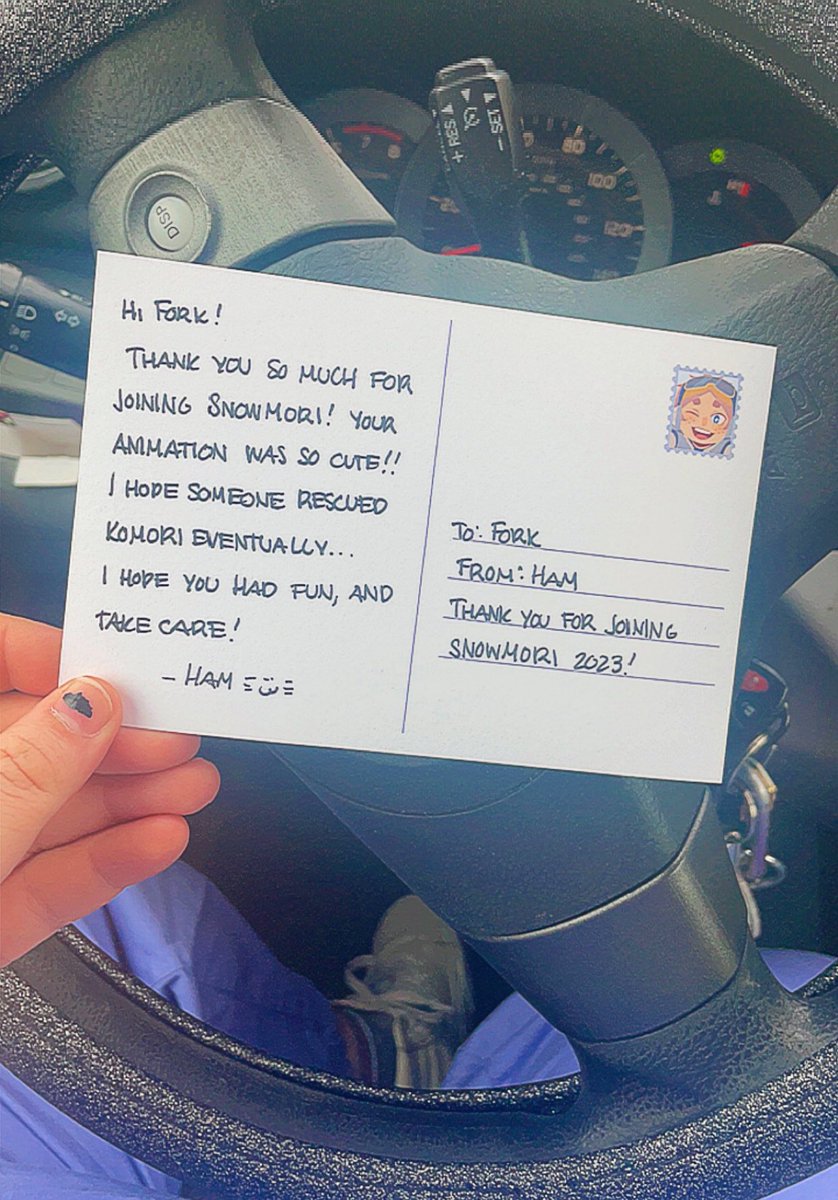 SET -
RES +
80
100
120
DISP
HI FORK!
THANK YOU SO MUCH FOR
JOINING SNOWMORI! YOUR
ANIMATION WAS SO CUTE!!
I HOPE SOMEONE RESCUED
KOMORI EVENTUALLY...
I HOPE YOU HAD FUN, AND
TAKE CARE!
- HAM
TO: FORK
FROM: HAM
THANK YOU FOR JOINING
SNOWMORI 2023!